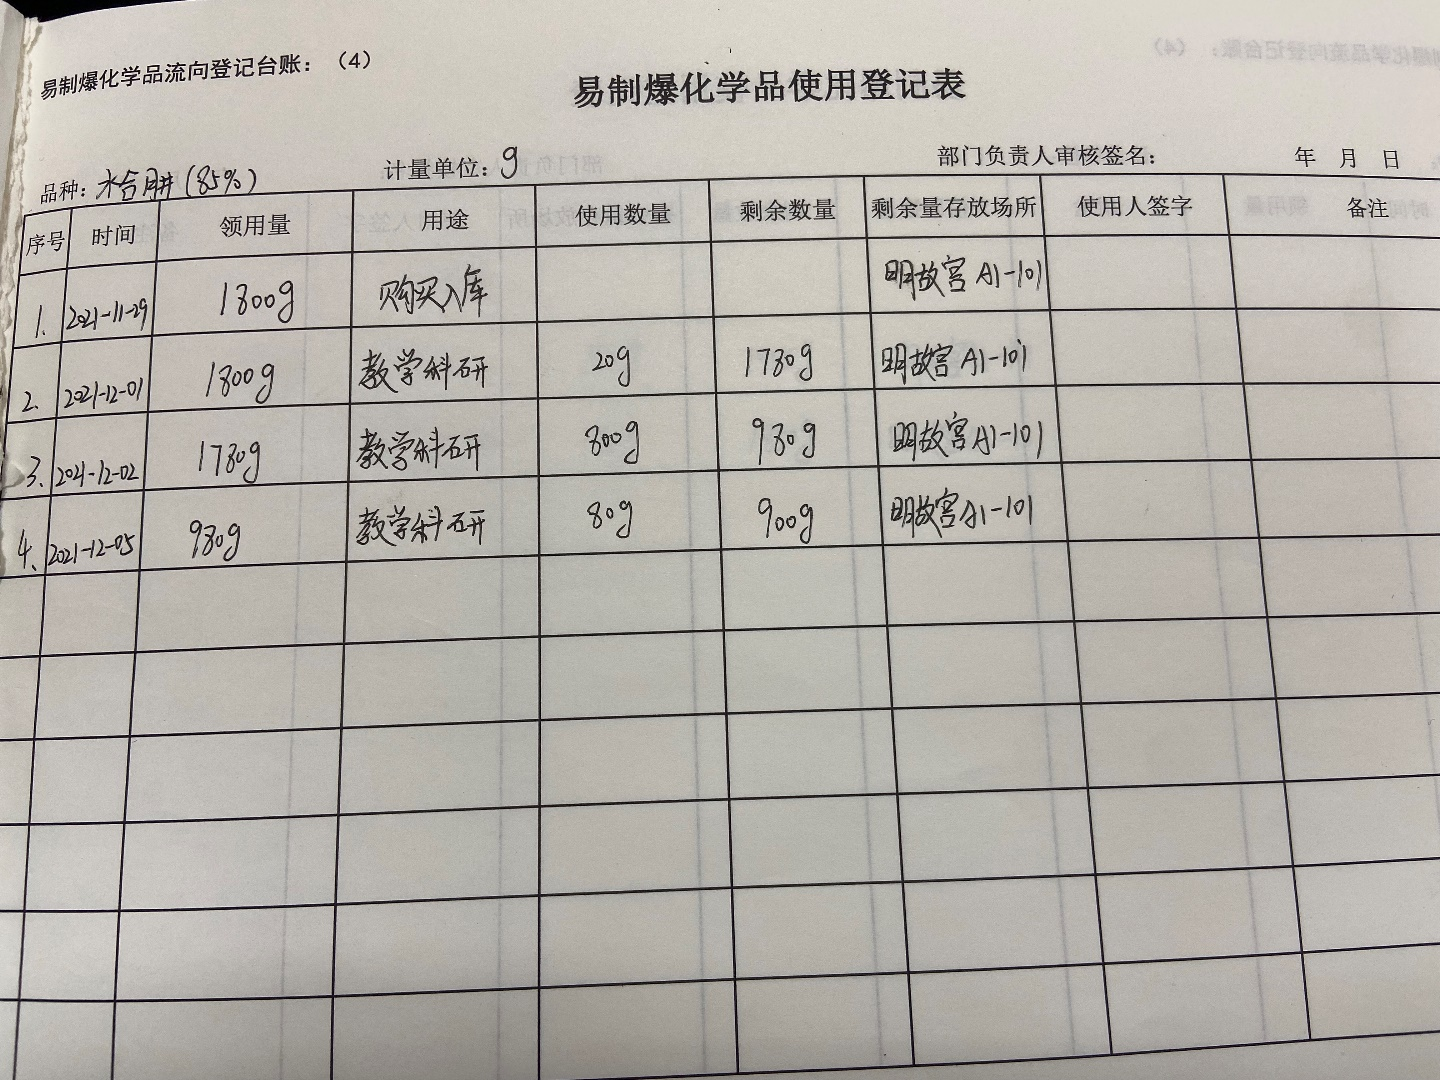 易制爆化学品流向登记台账：（4）
易制爆化学品使用登记表
品种：水合肼（85%） 计量单位：g 部门负责人审核签名： 年 月 日
序号 时间 领用量 用途 使用数量 剩余数量 剩余量存放场所 使用人签字 备注
1. 2021-11-29 1800g 购买入库 明故宫A1-101
2. 2021-12-01 1800g 教学科研 20g 1780g 明故宫A1-101
3. 2021-12-02 1780g 教学科研 800g 980g 明故宫A1-101
4. 2021-12-05 980g 教学科研 80g 900g 明故宫A1-101